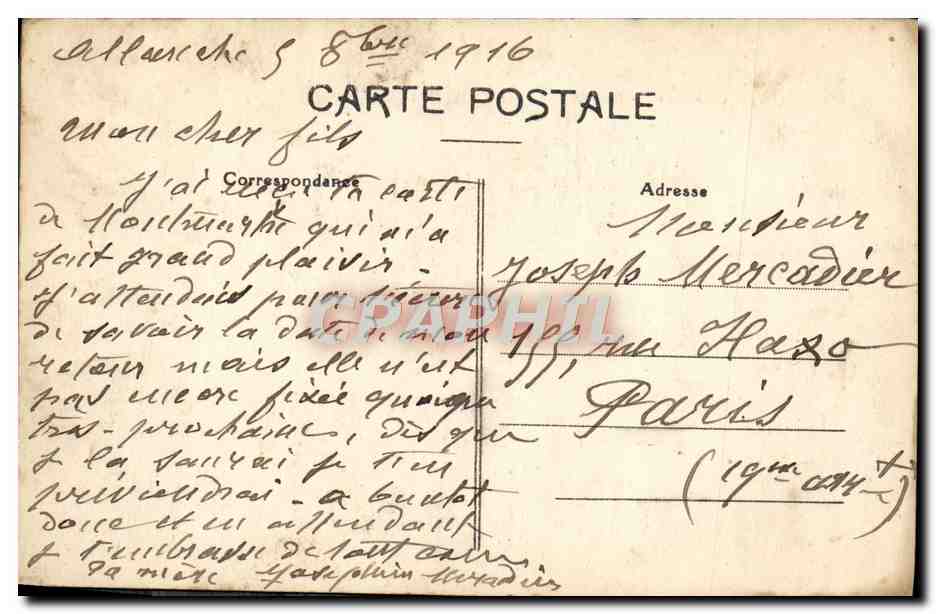 Allanche 5 8bre 1916
CARTE POSTALE
Mon cher fils
Correspondance
J'ai reçu ta carte
de Montmartre qui m'a
fait grand plaisir -
J'attendais pour t'écrire
de savoir la date de mon
retour mais elle n'est
pas encore fixée quoique
très-prochaine, dès que
je la saurai je t'en
préviendrai - a bientot
donc et en attendant
je t'embrasse de tout cœur
Ta mère Joséphine Mercadier
Adresse
Monsieur
Joseph Mercadier
155, rue Haxo
Paris
(19me arrt)
CPAPHIL